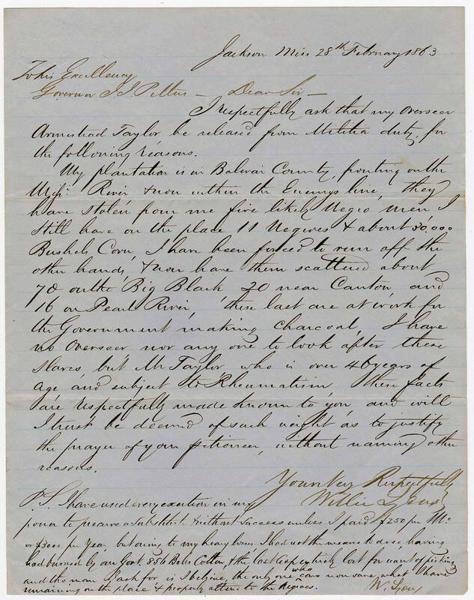 Jackson Miss 28th February 1863
To his Excellency
Governor J J Pettus — Dear Sir —
I respectfully ask that my overseer
Armestead Taylor be released from Militia duty, for
the following reasons.
My plantation is in Bolivar County, fronting on the
Missi River & now within the Enemys line, they
have stolen from me five likely Negro men, I
still have on the place 11 Negroes & about 20,000
Bushels Corn, I have been forced to run off the
other hands, & now have them scattered about
70 on the Big Black 20 near Canton and
16 on Pearl River, these last are at work for
the Government making charcoal, I have
no Overseer nor any one to look after these
Slaves, but Mr Taylor who is over 40 years of
age and subject to Rheumatism these facts
are respectfully made known to you and will
I trust be deemed of such weight as to justify
the prayer of your petitioner, without naming other
reasons.
Your Very Respectfully
P.S. I have used every exertion in my
power to procure a Substitute without success unless I paid $250 pr Mo
or $3000 per Year, but owing to my heavy losses I had not the means to do so, having
had burned by our Govt 856 Bales Cotton, & the last Crop entirely lost for want of picking
and this man I ask for, is I believe, the only one who can now save what I have
remaining on the place & properly attend to the Negroes.